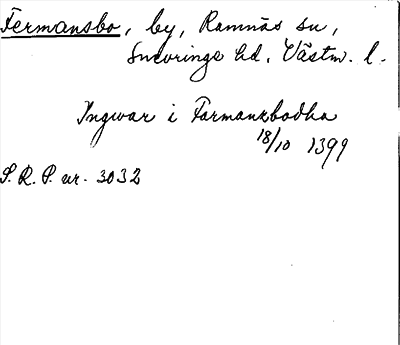 Fermansbo, by, Ramnäs sn,
Snevringe hd, Västm. l.
Ingwar i Farmanxbodha
18/10 1399
S. R. P. nr. 3032